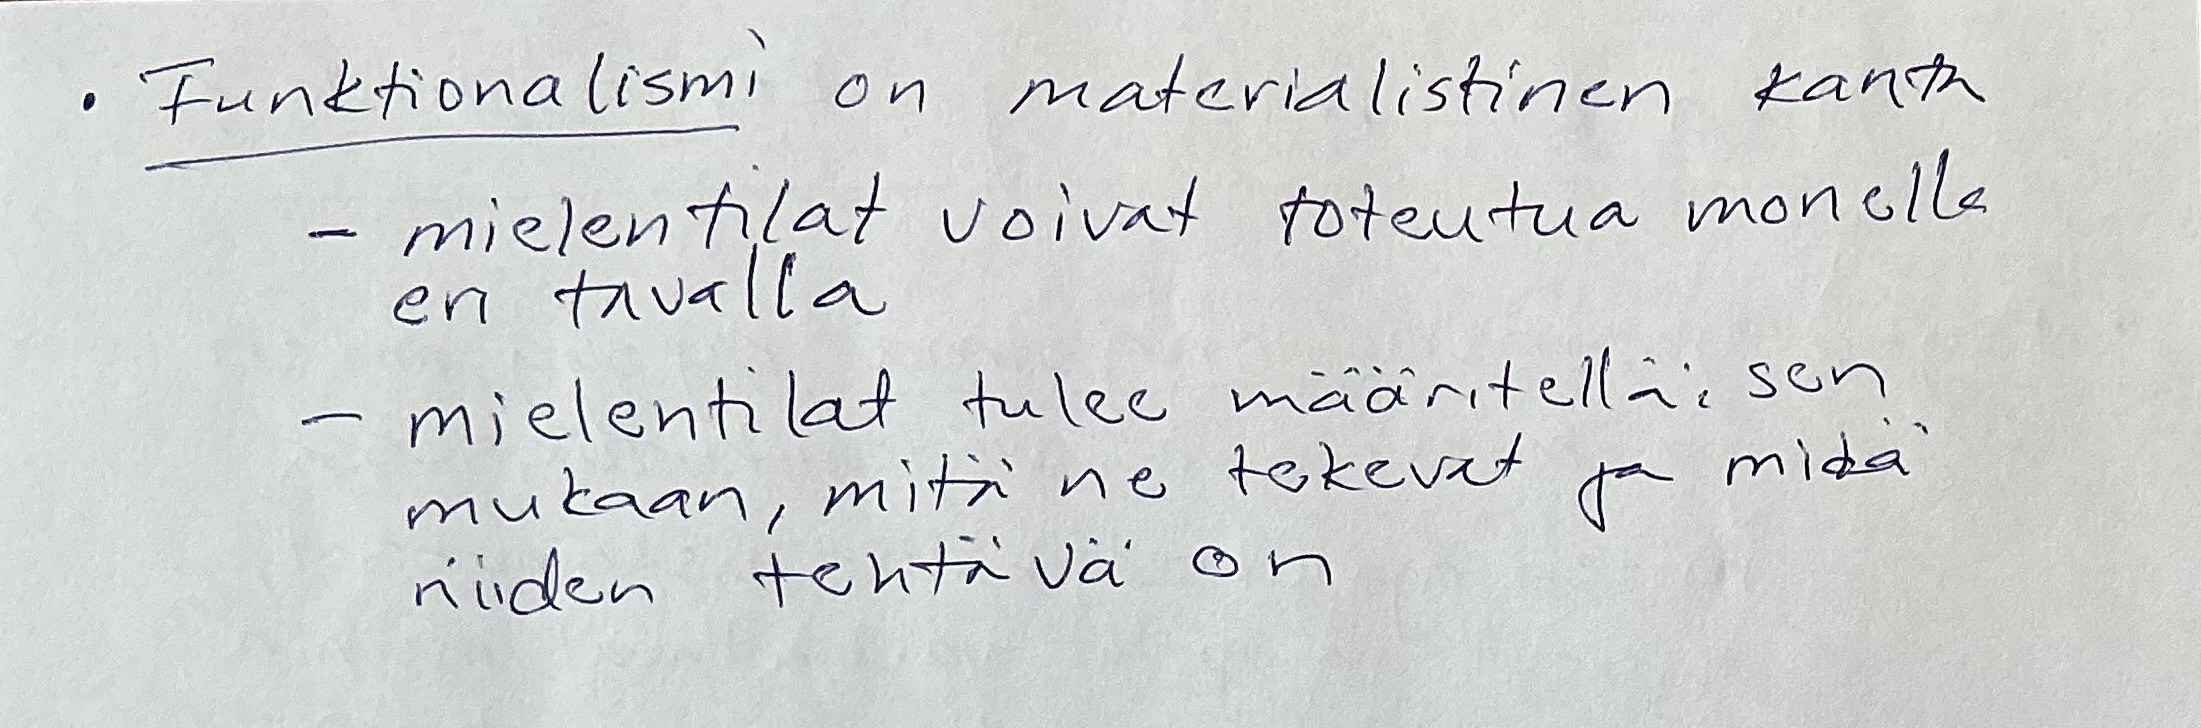 • Funktionalismi on materialistinen kanta
- mielentilat voivat toteutua monella
en tavalla
- mielentilat tulee määritellä: sen
mukaan, mitä ne tekevat ja mikä
niiden tehtävä on